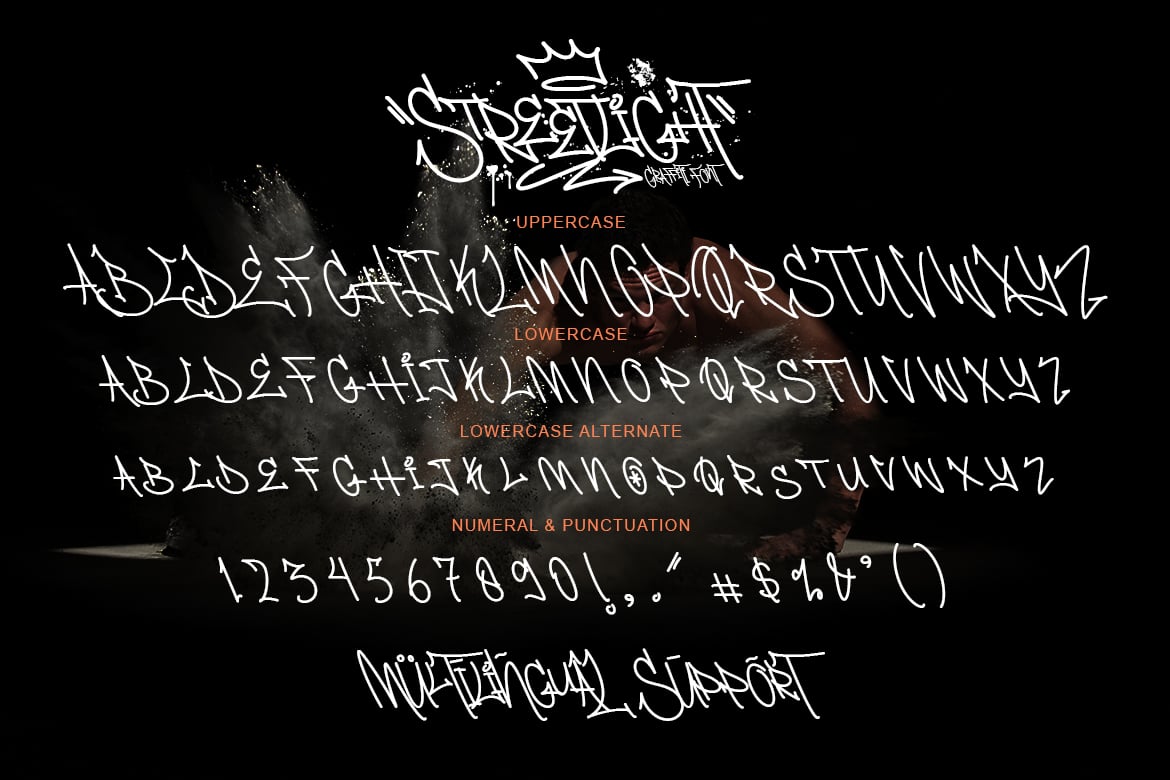 "STREETLIGHT
GRAFFITI FONT
UPPERCASE
ABCDEFGHIJKLMNOPQRSTUVWXYZ
LOWERCASE
ABCDEFGHIJKLMNOPQRSTUVWXYZ
LOWERCASE ALTERNATE
ABCDEFGHIJKLMNOPQRSTUVWXYZ
NUMERAL & PUNCTUATION
1234567890!,." #$%&'()
MÜLTILINGUAL SUPPORT